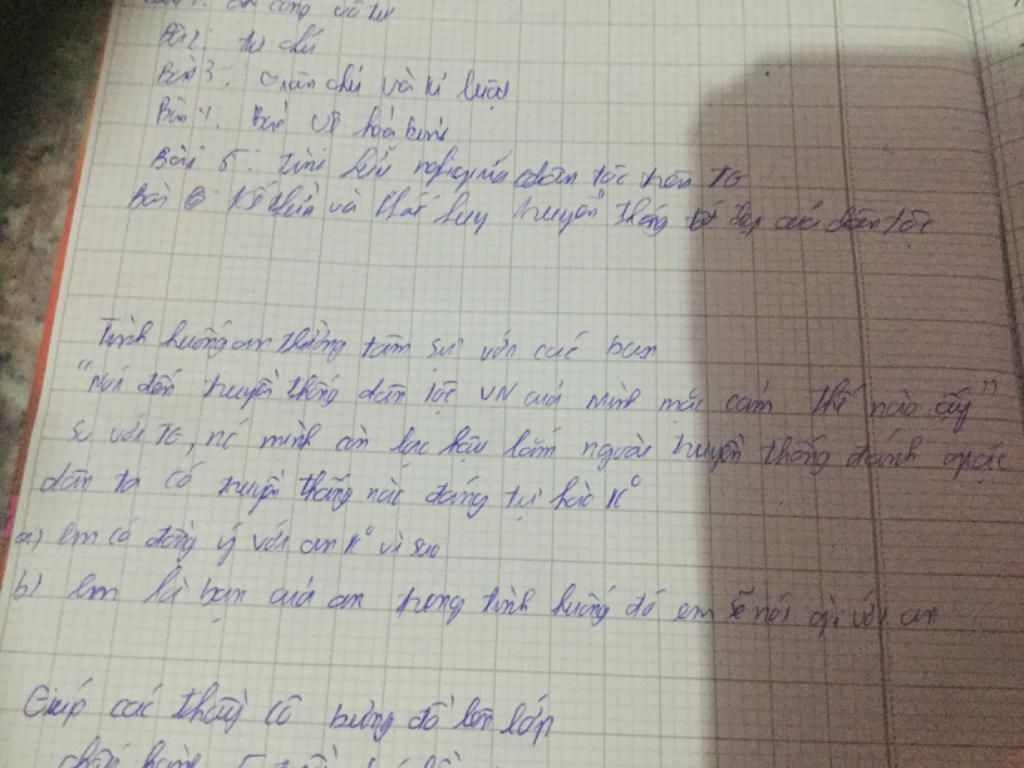 công vô tư
Bài 2: tự chủ
Bài 3: Dân chủ và kỉ luật
Bài 4: Bảo vệ hoà bình
Bài 5: tình hữu nghị giữa dân tộc trên TG
Bài 6 Kế thừa và phát huy truyền thống tốt đẹp của dân tộc
Tình huống an thường tâm sự với các bạn
"Nói đến truyền thống dân tộc VN của mình mặc cảm thế nào ấy"
So với TG, nc mình còn lạc hậu lắm ngoài truyền thống đánh giặc
dân ta có truyền thống nào đáng tự hào K°
a) em có đồng ý với an K° vì sao
b) em là bạn của an trong tình huống đó em sẽ nói gì với an
Giúp các thầy cô bưng đồ lên lớp